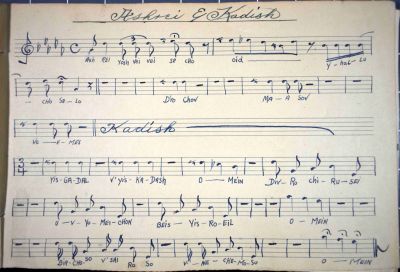 Ashrei & Kadish
Ash REI Yosh vei vei SE CHO oid Y-hal-Lu
CHO SE-Lo DIO CHOV MA-A SOV
VE-I-MEI Kadish
YIS-GA-DAL V'YIS-KA-DASH O-MEIN DIV-RO CHI-RU-SEI
U-V-YO-MEI-CHON BEIS-YIS-RO-EIL O-MEIN
BIR-CHO-SO V'SHI RO SO V'NE-CHE-MO-SO O-MEIN